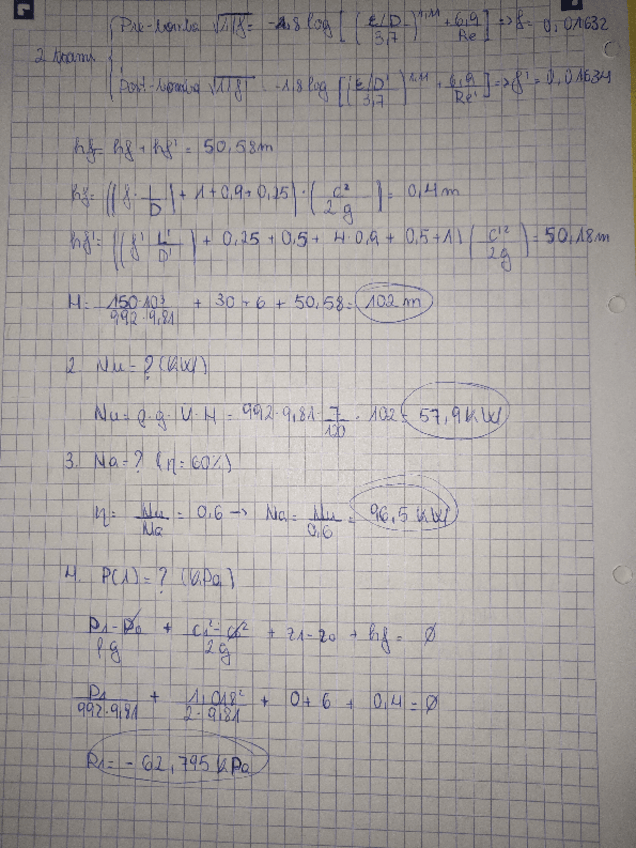 Pre-bomba √1/f = -1.8 log [ ( (ε/D)/3,7 )^1,11 + 6,9/Re ] => f = 0,01632
2 Koami
Post-bomba √1/f' = -1.8 log [ ( (ε/D')/3,7 )^1,11 + 6,9/Re' ] => f' = 0,01634
hf = hf + hf' = 50,58 m
hf = ((f · L/D) + 1 + 0,9 + 0,25) · (c²/2g) = 0,4 m
hf' = ((f' L'/D') + 0,25 + 0,5 + 4·0,9 + 0,5 + 1) (c'²/2g) = 50,18 m
H = 150·10³/992·9,81 + 30 - 6 + 50,58 = 102 m
2. Nu = ? (KW)
Nu = ρ·g·V·H = 992·9,81·7/120·102 = 57,9 KW
3. Na = ? (η = 60%)
η = Nu/Na = 0,6 → Na = Nu/0,6 = 96,5 KW
4. P(1) = ? (KPa)
P1-P0/ρg + c1²-c0²/2g + z1-z0 + hf = ∅
P1/992·9,81 + 1,018²/2·9,81 + 0 + 6 + 0,4 = ∅
P1 = -62,795 KPa